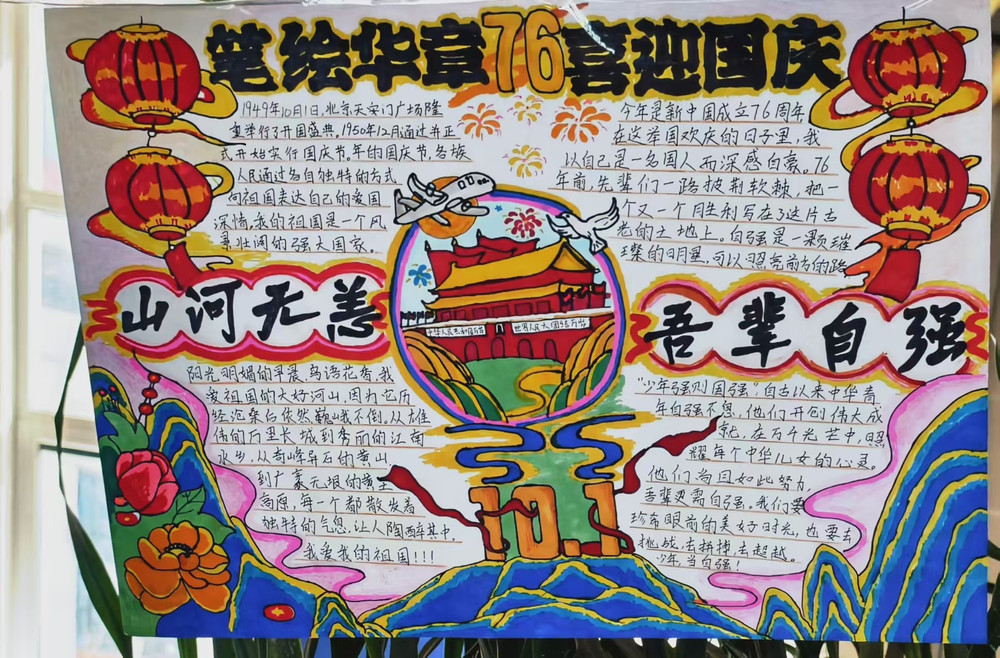 笔绘华章76喜迎国庆
1949年10月1日,北京天安门广场隆
重举行了开国盛典。1950年12月通过并正
式开始实行国庆节。年的国庆节,各族
人民通过各自独特的方式
向祖国表达自己的爱国
深情。我的祖国是一个风
壮阔的强大国家。
今年是新中国成立76周年
在这举国欢庆的日子里,我
以自己是一名国人而深感自豪。76
年前,先辈们一路披荆软棘,把一
个又一个胜利写在了这片古
老的土地上。自强是一颗璀
璨的明星,可以照亮前方的路
中华人民共和国万岁
世界人民大团结万岁
山河无恙
吾辈自强
阳光明媚的早晨,鸟语花香,我
爱祖国的大好河山,因为它历
经沧桑后依然巍峨不倒。从雄
伟的万里长城到秀丽的江南
水乡,从奇峰异石的黄山
到广袤无垠的黄土
高原,每一个都散发着
独特的气息,让人陶醉其中,
我爱我的祖国!!!
“少年强则国强”自古以来中华青
年自强不息,他们开创伟大成
就,在万千光芒中,照
耀每个中华儿女的心灵。
他们尚且如此努力,
吾辈更需自强。我们要
珍惜眼前的美好时光,也要去
挑战,去拼搏,去超越。
少年当自强!
10.1